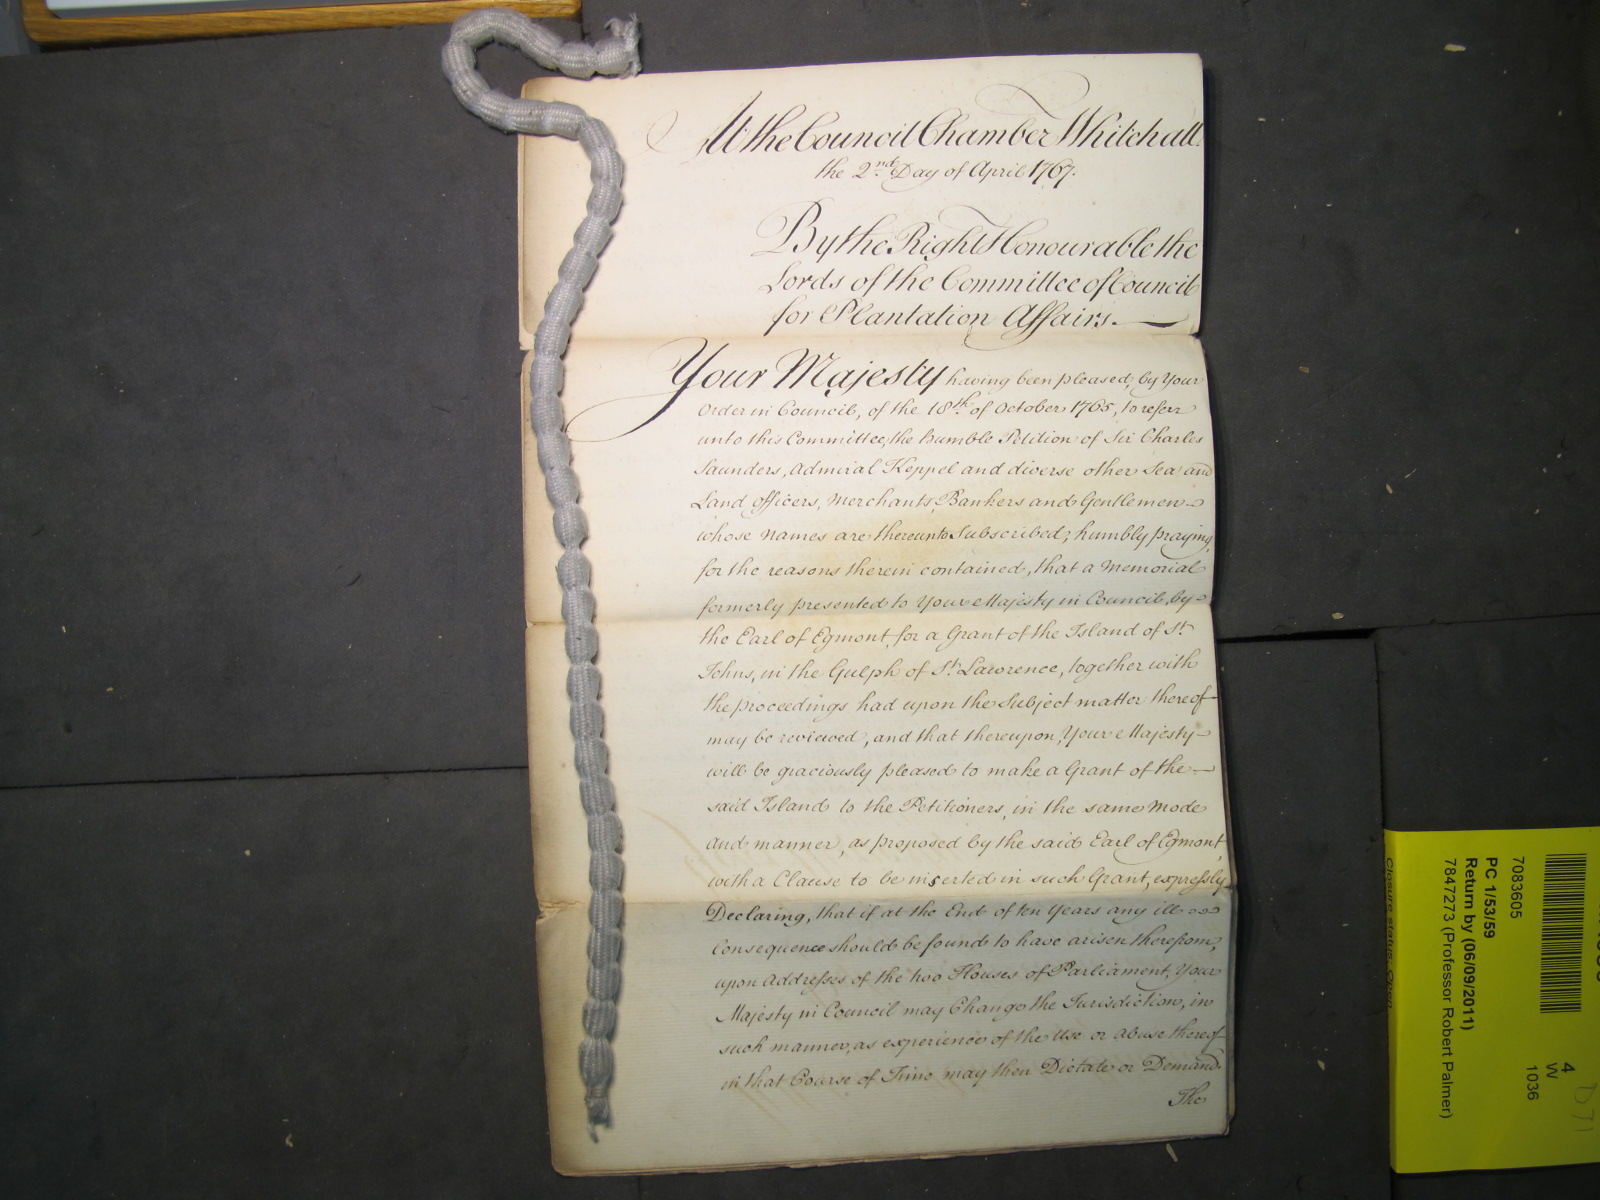 At the Council Chamber Whitehall.
the 2nd. Day of April 1767.
By the Right Honourable the
Lords of the Committee of Council
for Plantation Affairs.
Your Majesty having been pleased, by Your
Order in Council, of the 18th. of October 1765, to referr
unto this Committee, the humble Petition of Sir Charles
Saunders, Admiral Keppel and diverse other Sea and
Land officers, Merchants, Bankers and Gentlemen
whose names are thereunto Subscribed; humbly praying,
for the reasons therein contained, that a Memorial
formerly presented to Your Majesty in Council, by
the Earl of Egmont, for a Grant of the Island of St.
Johns, in the Gulph of St. Lawrence, together with
the proceedings had upon the Subject matter thereof
may be reviewed, and that thereupon, Your Majesty
will be graciously pleased to make a Grant of the
said Island to the Petitioners, in the same Mode
and manner, as proposed by the said Earl of Egmont,
with a Clause to be inserted in such Grant, expressly
Declaring, that if at the End of ten Years any ill
Consequence should be found to have arisen therefrom,
upon Addresses of the two Houses of Parliament, Your
Majesty in Council may Change the Jurisdiction, in
such manner, as experience of the Use or abuse thereof
in that Course of Time may then Dictate or Demand.
The
7083605
PC 1/53/59
Return by (06/09/2011)
7847273 (Professor Robert Palmer)
Closure status: Open
4
W
1036